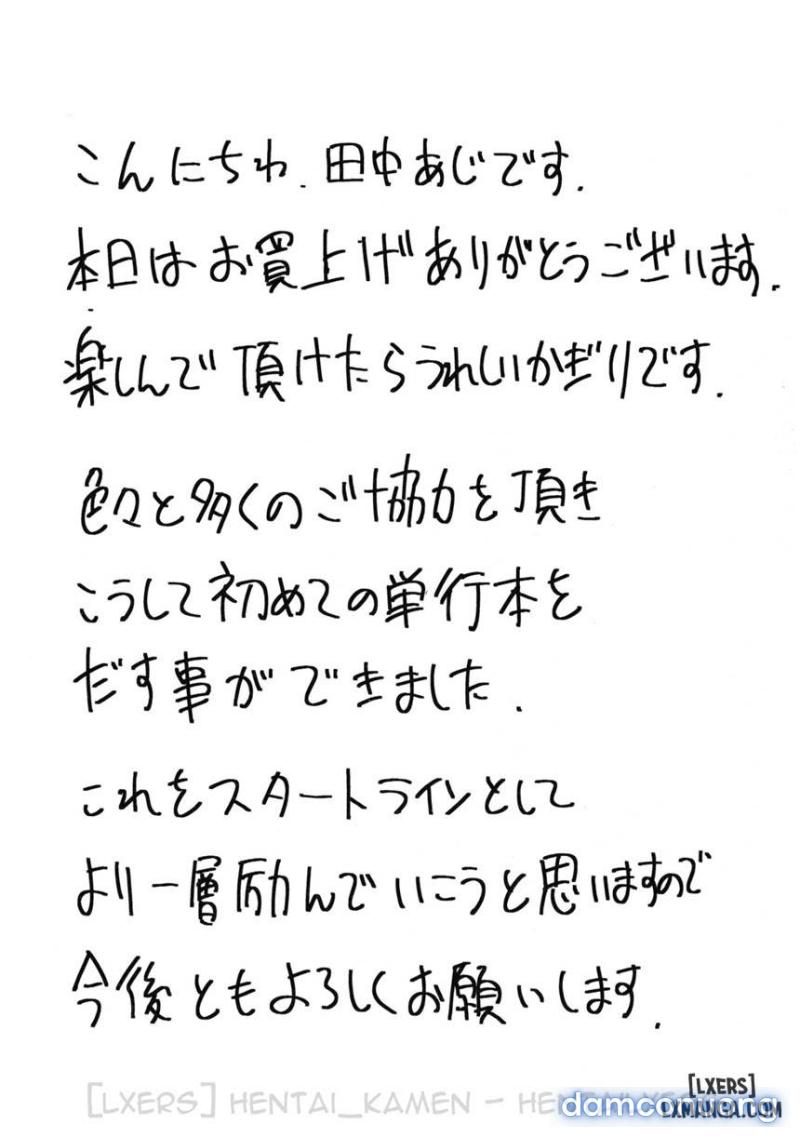 こんにちわ.田中あじです.
本日はお買上げありがとうございます.
楽しんで頂けたらうれしいかぎりです.
色々と多くのご協力を頂き
こうして初めての単行本を
だす事ができました.
これをスタートラインとして
より一層励んでいこうと思いますので
今後ともよろしくお願いします.
[LXERS]
[LXERS] HENTAI_KAMEN - HE
damconuong
LXMANGA.COM